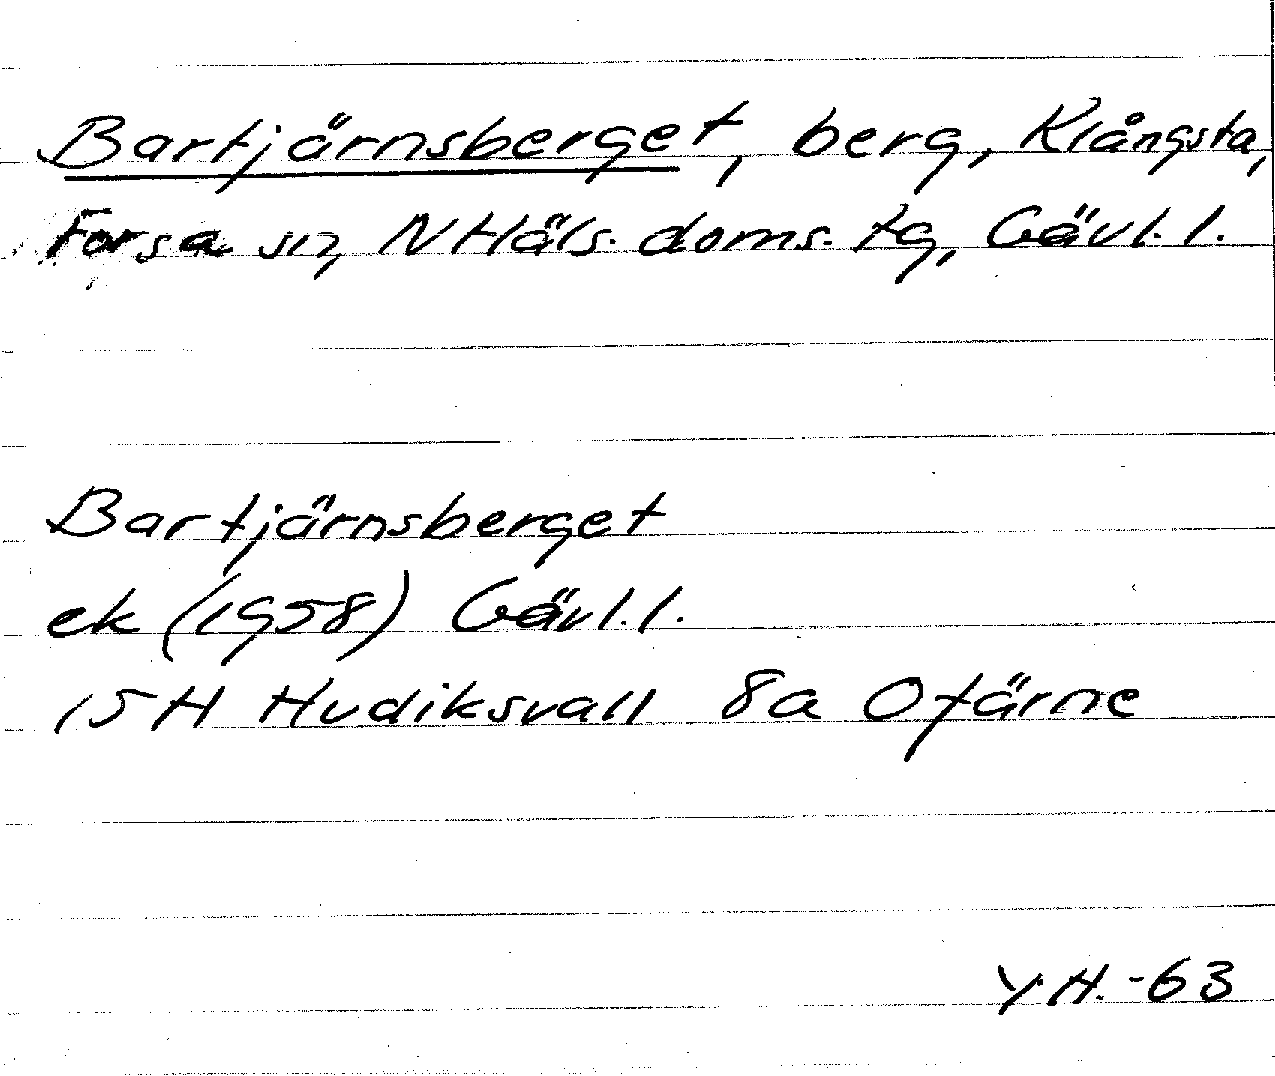 Bartjärnsberget, berg, Klångsta,
Forsa sn, N Häls. doms. tg, Gävl. l.
Bartjärnsberget
ek (1958) Gävl. l.
15H Hudiksvall 8a Ofärne
Y.H. -63